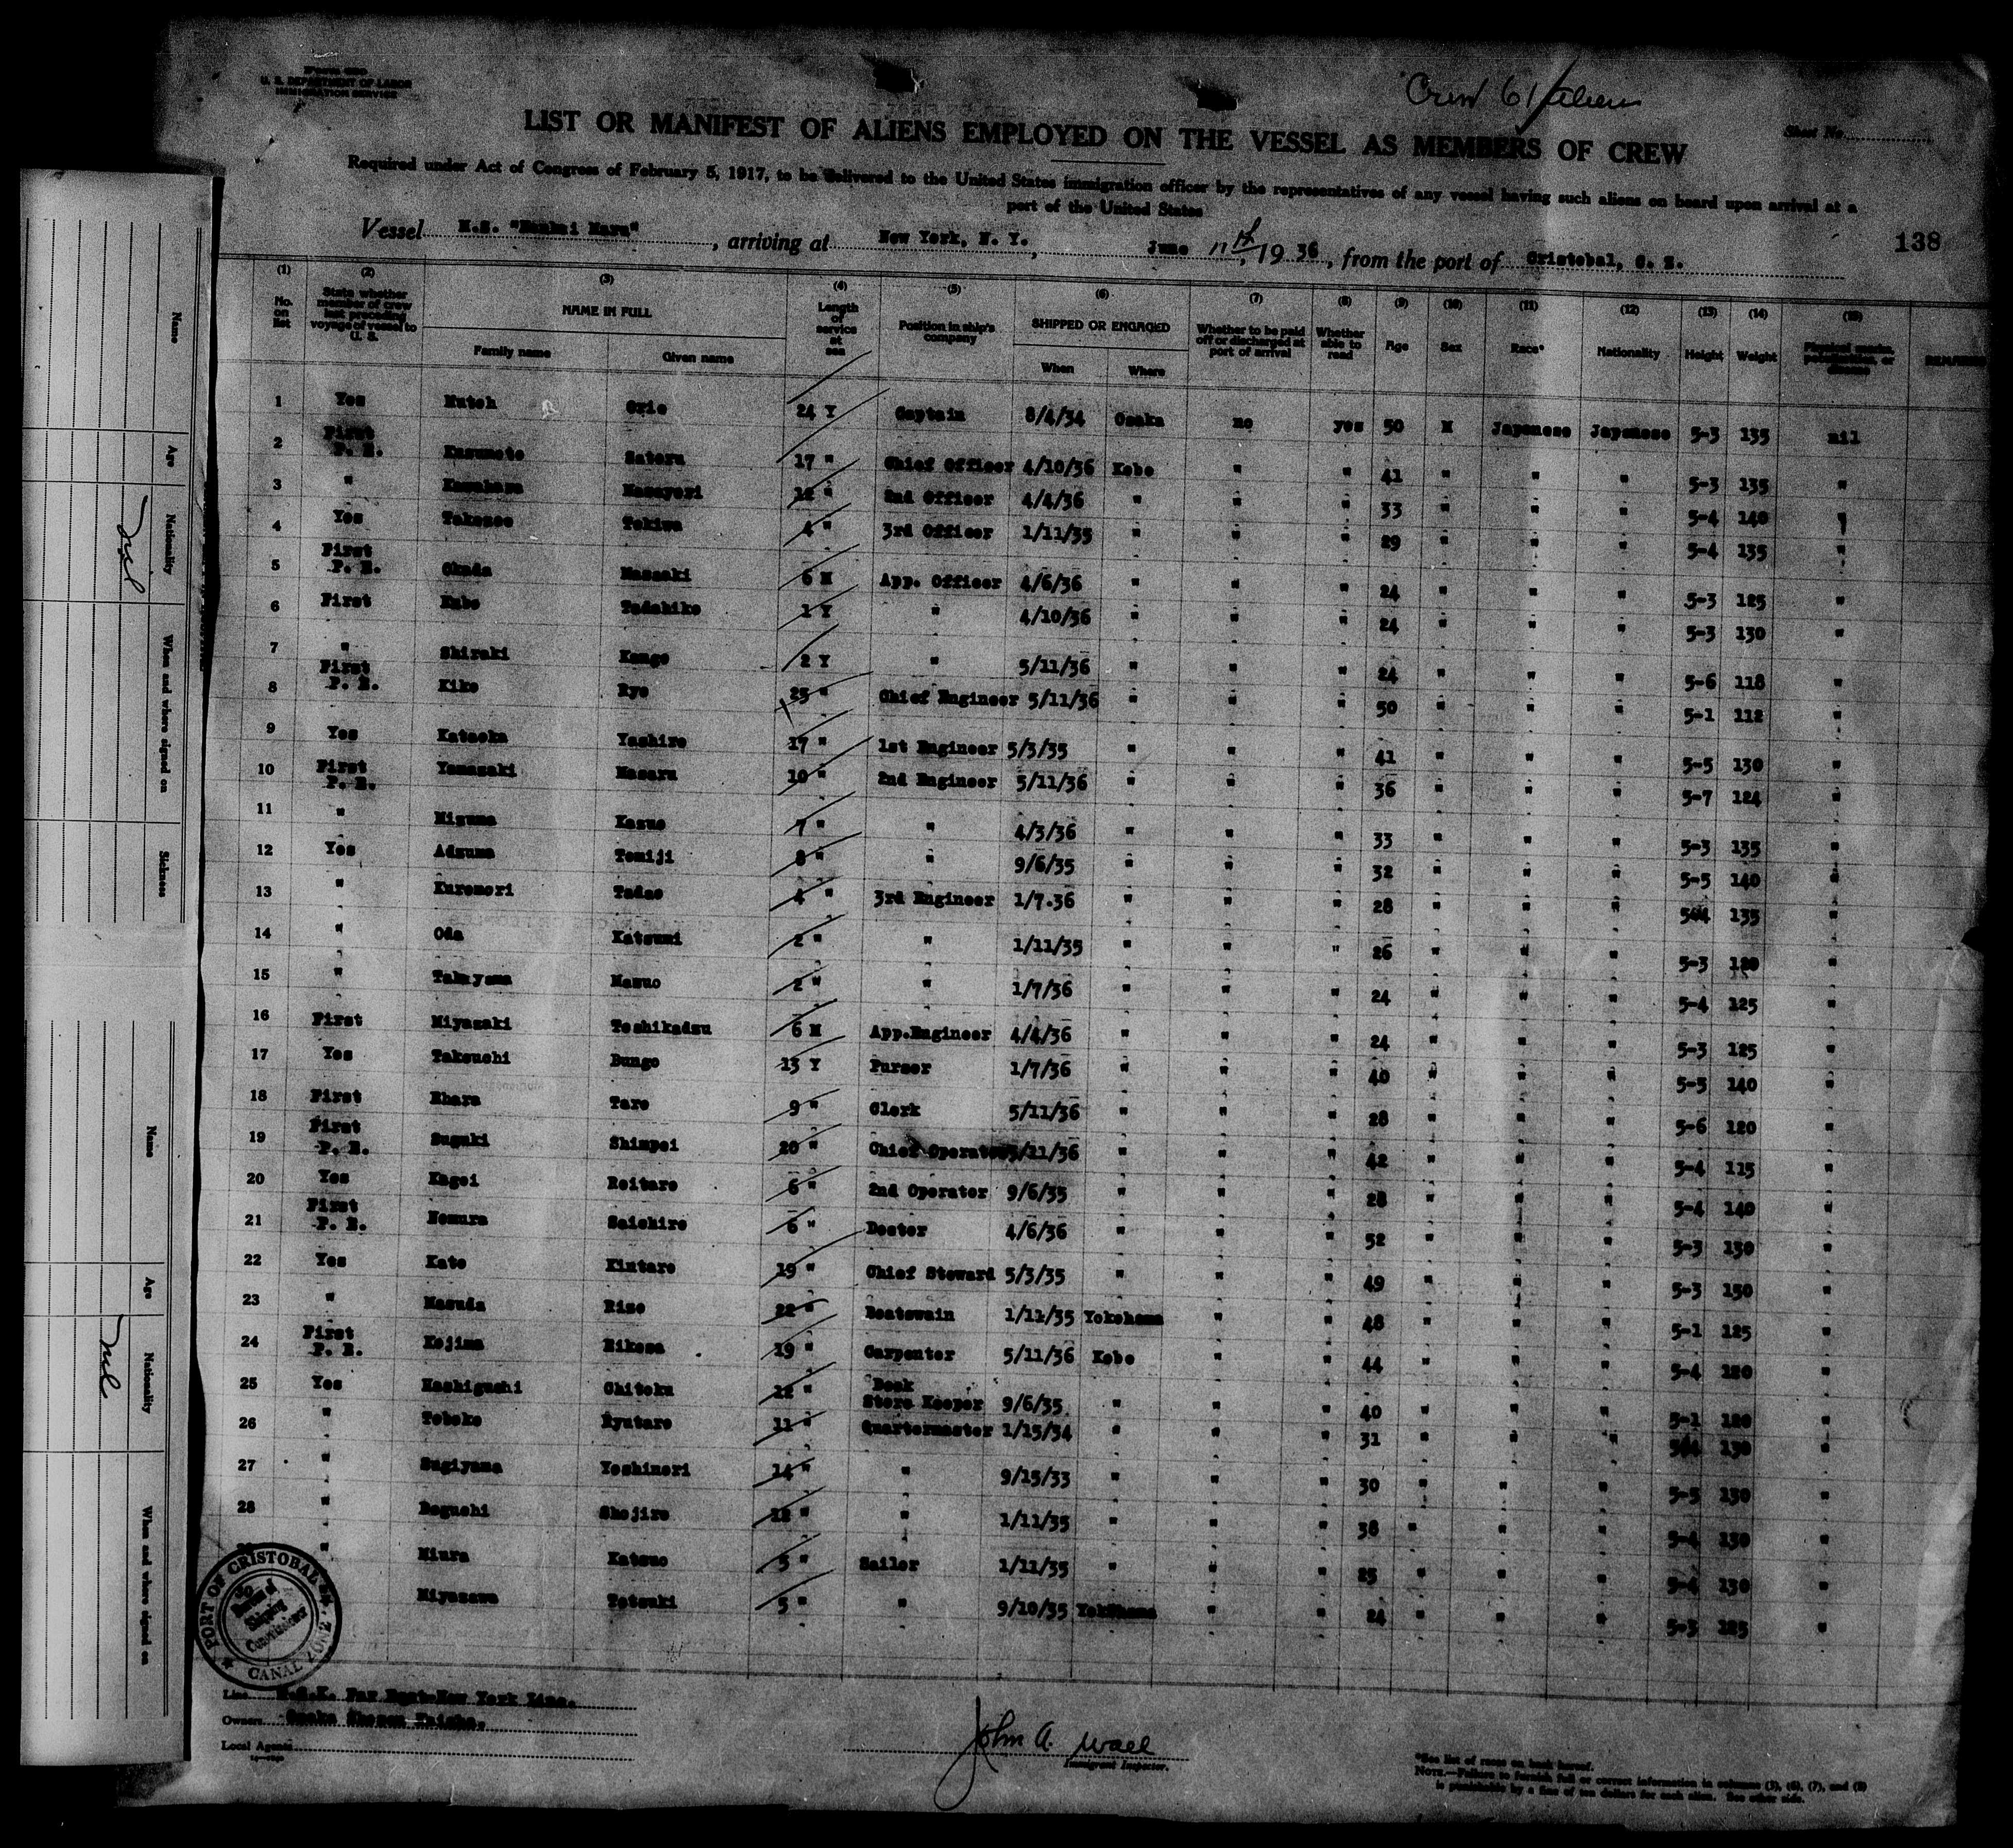 U. S. DEPARTMENT OF LABOR
IMMIGRATION SERVICE
Crew 61 aliens
Sheet No.
LIST OR MANIFEST OF ALIENS EMPLOYED ON THE VESSEL AS MEMBERS OF CREW
Required under Act of Congress of February 5, 1917, to be delivered to the United States immigration officer by the representatives of any vessel having such aliens on board upon arrival at a
port of the United States
Vessel M.S. "Nankai Maru", arriving at New York, N. Y., June 11th, 1936, from the port of Cristobal, C. Z.
138
(1) (2) (3) (4) (5) (6) (7) (8) (9) (10) (11) (12) (13) (14) (15)
No. on list State whether member of crew last preceding voyage of vessel to U. S. NAME IN FULL Family name Given name Length of service at sea Position in ship's company SHIPPED OR ENGAGED When Where Whether to be paid off or discharged at port of arrival Whether able to read Age Sex Race* Nationality Height Weight Physical marks, peculiarities, or disease
1 Yes Mutoh Orie 24 Y Captain 8/4/34 Osaka no yes 50 M Japanese Japanese 5-3 135 nil
2 First P. E. Kusumoto Satoru 17 " Chief Officer 4/10/36 Kobe " " 41 " " " 5-3 135 "
3 " Kawahara Masayori 12 " 2nd Officer 4/4/36 " " " 33 " " " 5-4 140 "
4 Yes Takezoe Tokiwa 4 " 3rd Officer 1/11/35 " " " 29 " " " 5-4 135 "
5 First P. E. Okada Masaaki 6 M App. Officer 4/6/36 " " " 24 " " " 5-3 125 "
6 First Kubo Tadahiko 1 Y " 4/10/36 " " " 24 " " " 5-3 130 "
7 " Shiraki Kengo 2 Y " 5/11/36 " " " 24 " " " 5-6 118 "
8 First P. E. Kiko Ryo 25 " Chief Engineer 5/11/36 " " " 50 " " " 5-1 112 "
9 Yes Kataoka Yashiro 17 " 1st Engineer 5/3/35 " " " 41 " " " 5-5 130 "
10 First P. E. Yamazaki Masaru 10 " 2nd Engineer 5/11/36 " " " 36 " " " 5-7 124 "
11 " Mizuma Kazuo 7 " " 4/3/36 " " " 33 " " " 5-3 135 "
12 Yes Adzuma Tomiji 8 " " 9/6/35 " " " 32 " " " 5-5 140 "
13 " Kuromori Tadao 4 " 3rd Engineer 1/7.36 " " " 28 " " " 5-4 135 "
14 " Oda Katsumi 2 " " 1/11/35 " " " 26 " " " 5-3 120 "
15 " Takayama Masuo 2 " " 1/7/36 " " " 24 " " " 5-4 125 "
16 First Miyazaki Toshikadzu 6 M App.Engineer 4/4/36 " " " 24 " " " 5-3 125 "
17 Yes Takeuchi Bungo 13 Y Purser 1/7/36 " " " 40 " " " 5-5 140 "
18 First Ehara Taro 9 " Clerk 5/11/36 " " " 28 " " " 5-6 120 "
19 First P. E. Suzuki Shimpei 20 " Chief Operator 5/11/36 " " " 42 " " " 5-4 115 "
20 Yes Kagei Reitaro 6 " 2nd Operator 9/6/35 " " " 28 " " " 5-4 140 "
21 First P. E. Nomura Saichiro 6 " Doctor 4/6/36 " " " 52 " " " 5-3 130 "
22 Yes Kato Kintaro 19 " Chief Steward 5/3/35 " " " 49 " " " 5-3 150 "
23 " Masuda Riso 22 " Boatswain 1/11/35 Yokohama " " 48 " " " 5-1 125 "
24 First P. E. Kojima Rikoza 19 " Carpenter 5/11/36 Kobe " " 44 " " " 5-4 120 "
25 Yes Hashiguchi Chitoku 12 " Deck Store Keeper 9/6/35 " " " 40 " " " 5-1 120 "
26 " Toboko Ryutaro 11 " Quartermaster 1/15/34 " " " 31 " " " 5-4 130 "
27 " Sugiyama Yoshinori 14 " " 9/15/33 " " " 30 " " " 5-5 130 "
28 " Deguchi Shojiro 12 " " 1/11/35 " " " 38 " " " 5-4 130 "
" Miura Katsuo 5 " Sailor 1/11/35 " " " 25 " " " 5-4 130 "
30 Miyazawa Totsuki 5 " " 9/10/35 Yokohama " " 24 " " " 5-3 125 "
PORT OF CRISTOBAL
CANAL ZONE
Shipping
Commissioner
Line O.S.K. Far East-New York Line.
Owners Osaka Shosen Kaisha.
Local Agents
John A. Wall
Immigrant Inspector.
*See list of races on back hereof.
NOTE.—Failure to furnish full or correct information in columns (3), (6), (7), and (8)
is punishable by a fine of ten dollars for each alien. See other side.
Name
Age
Nationality
nil
When and where signed on
Sickness
Name
Age
Nationality
nil
When and where signed on